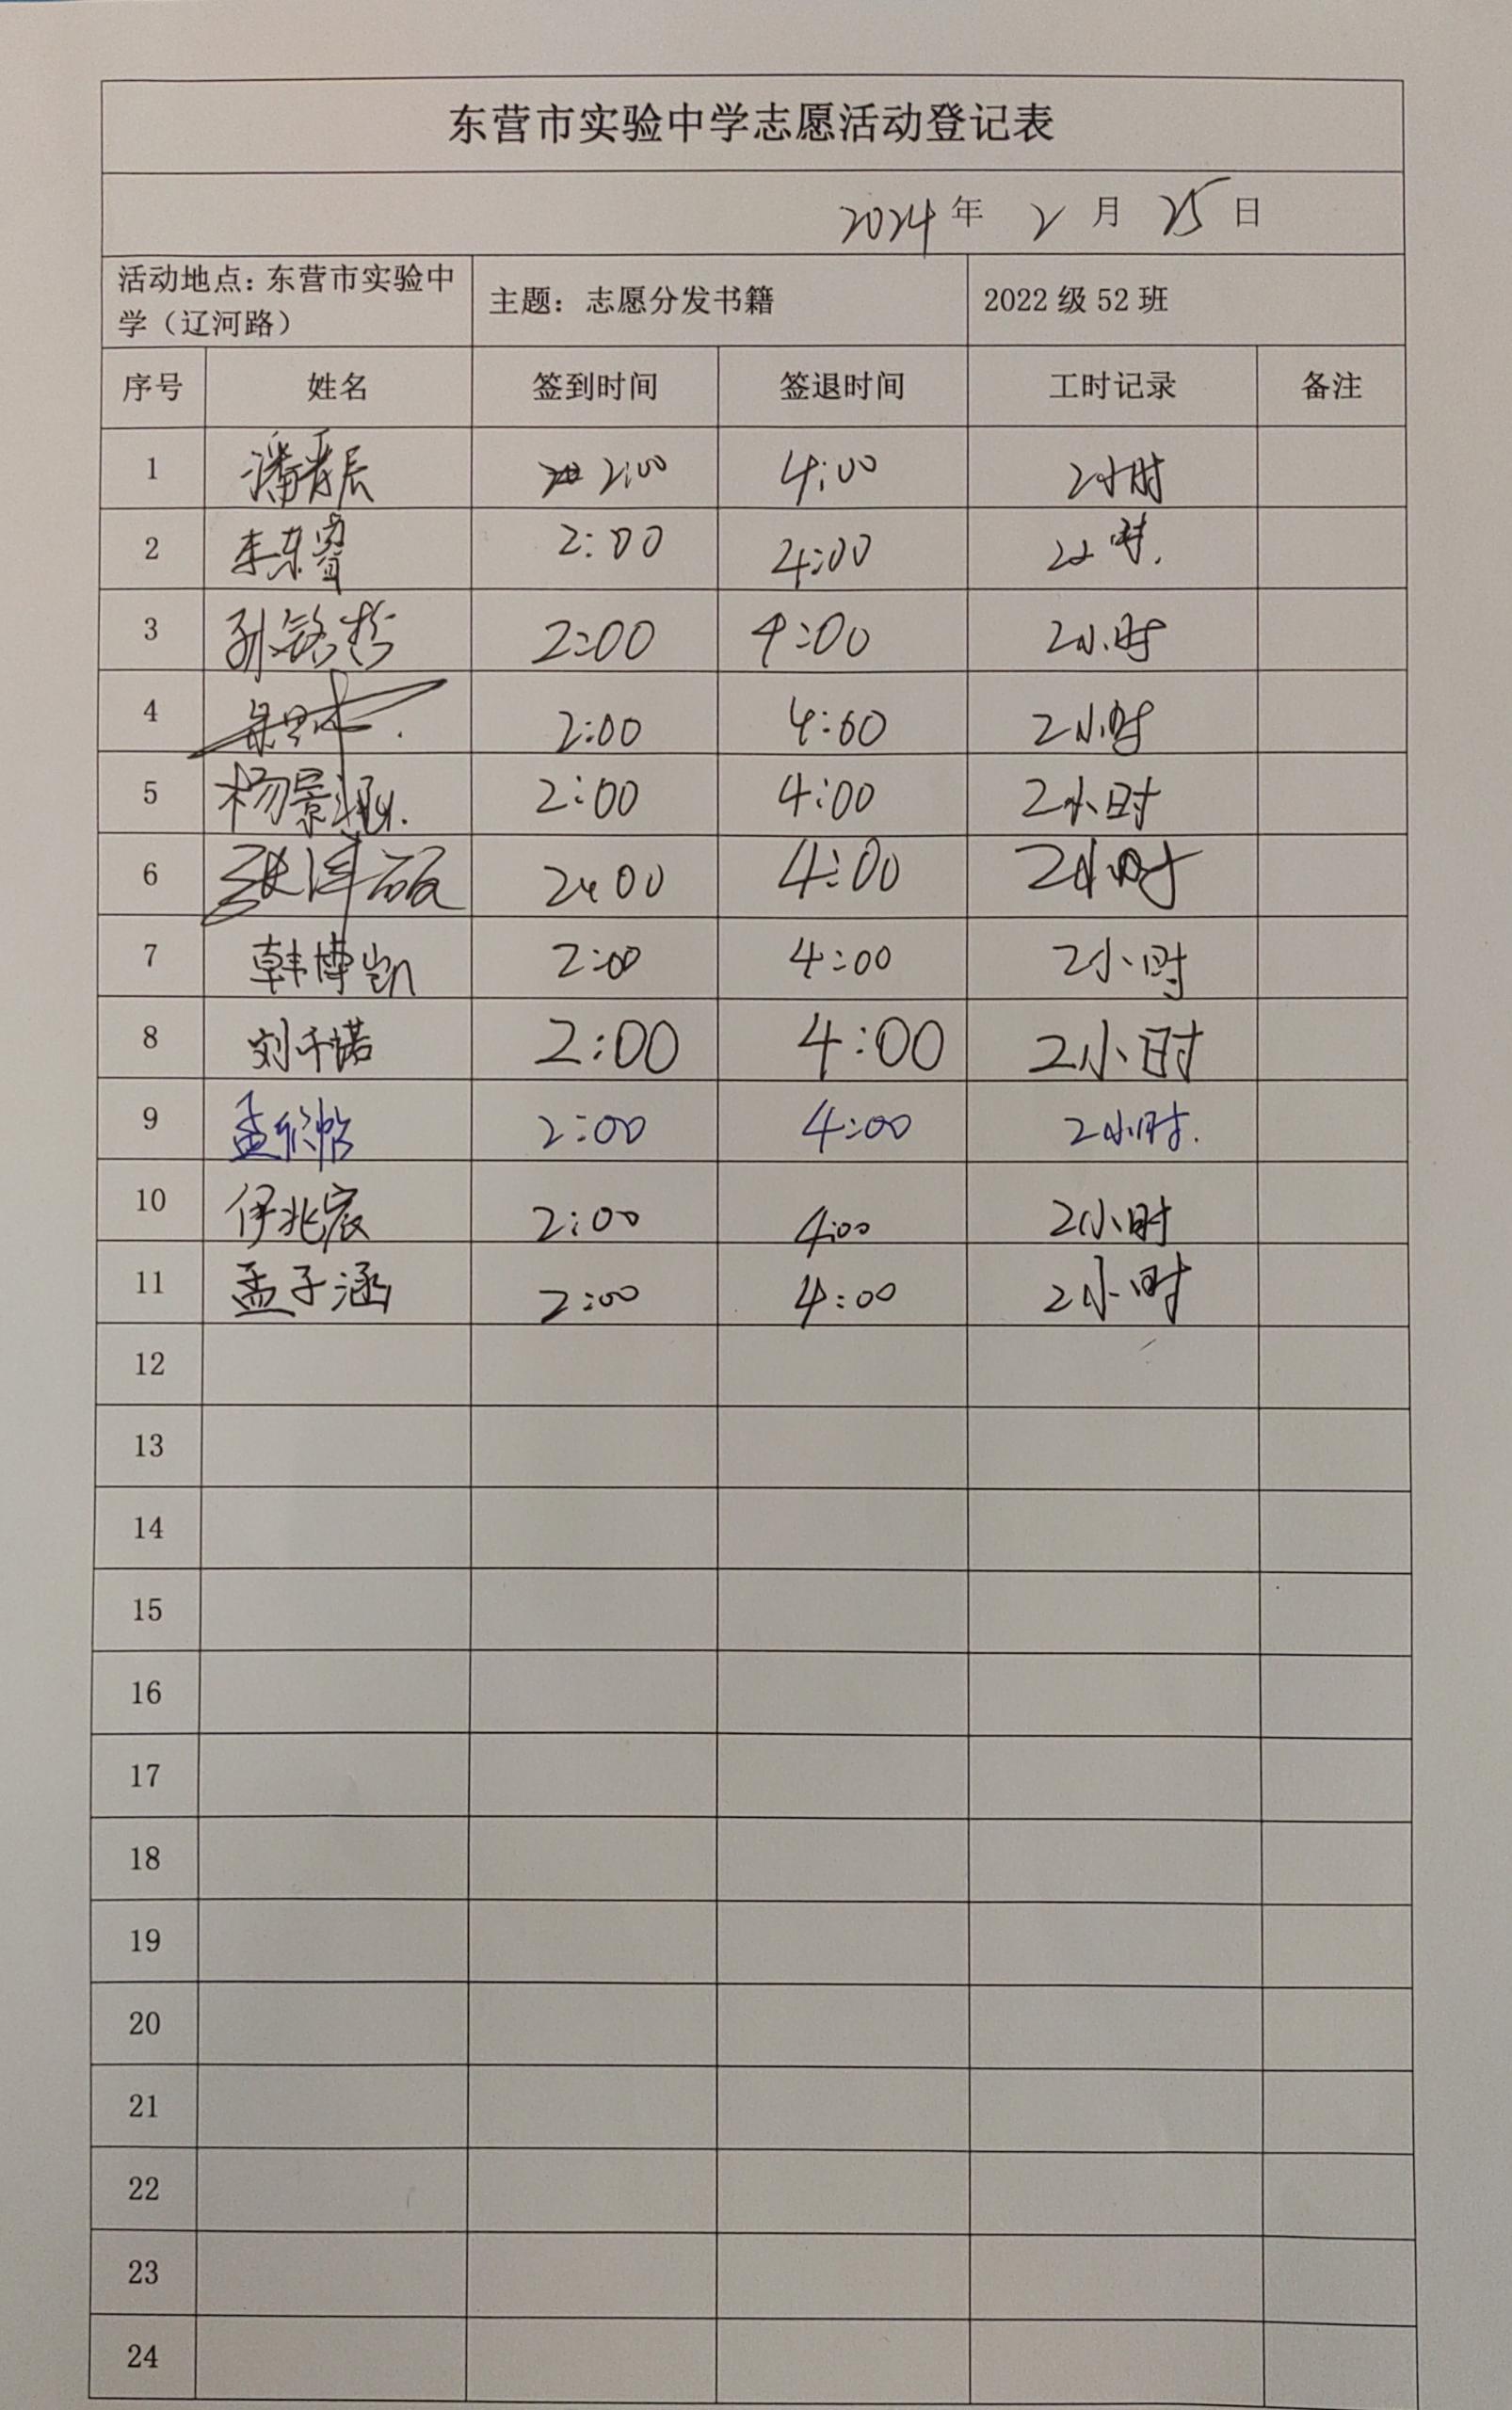 东营市实验中学志愿活动登记表
2024 年 2 月 25 日
活动地点：东营市实验中学（辽河路） 主题：志愿分发书籍 2022 级 52 班
序号 姓名 签到时间 签退时间 工时记录 备注
1 潘 辰 2:00 4:00 2小时
2 李东睿 2:00 4:00 2小时.
3 孙铭哲 2:00 4:00 2小时
4 2:00 4:00 2小时
5 杨景 2:00 4:00 2小时
6 张泽 2:00 4:00 2小时
7 韩博凯 2:00 4:00 2小时
8 刘千诺 2:00 4:00 2小时
9 孟 2:00 4:00 2小时.
10 伊兆宸 2:00 4:00 2小时
11 孟子涵 2:00 4:00 2小时
12
13
14
15
16
17
18
19
20
21
22
23
24